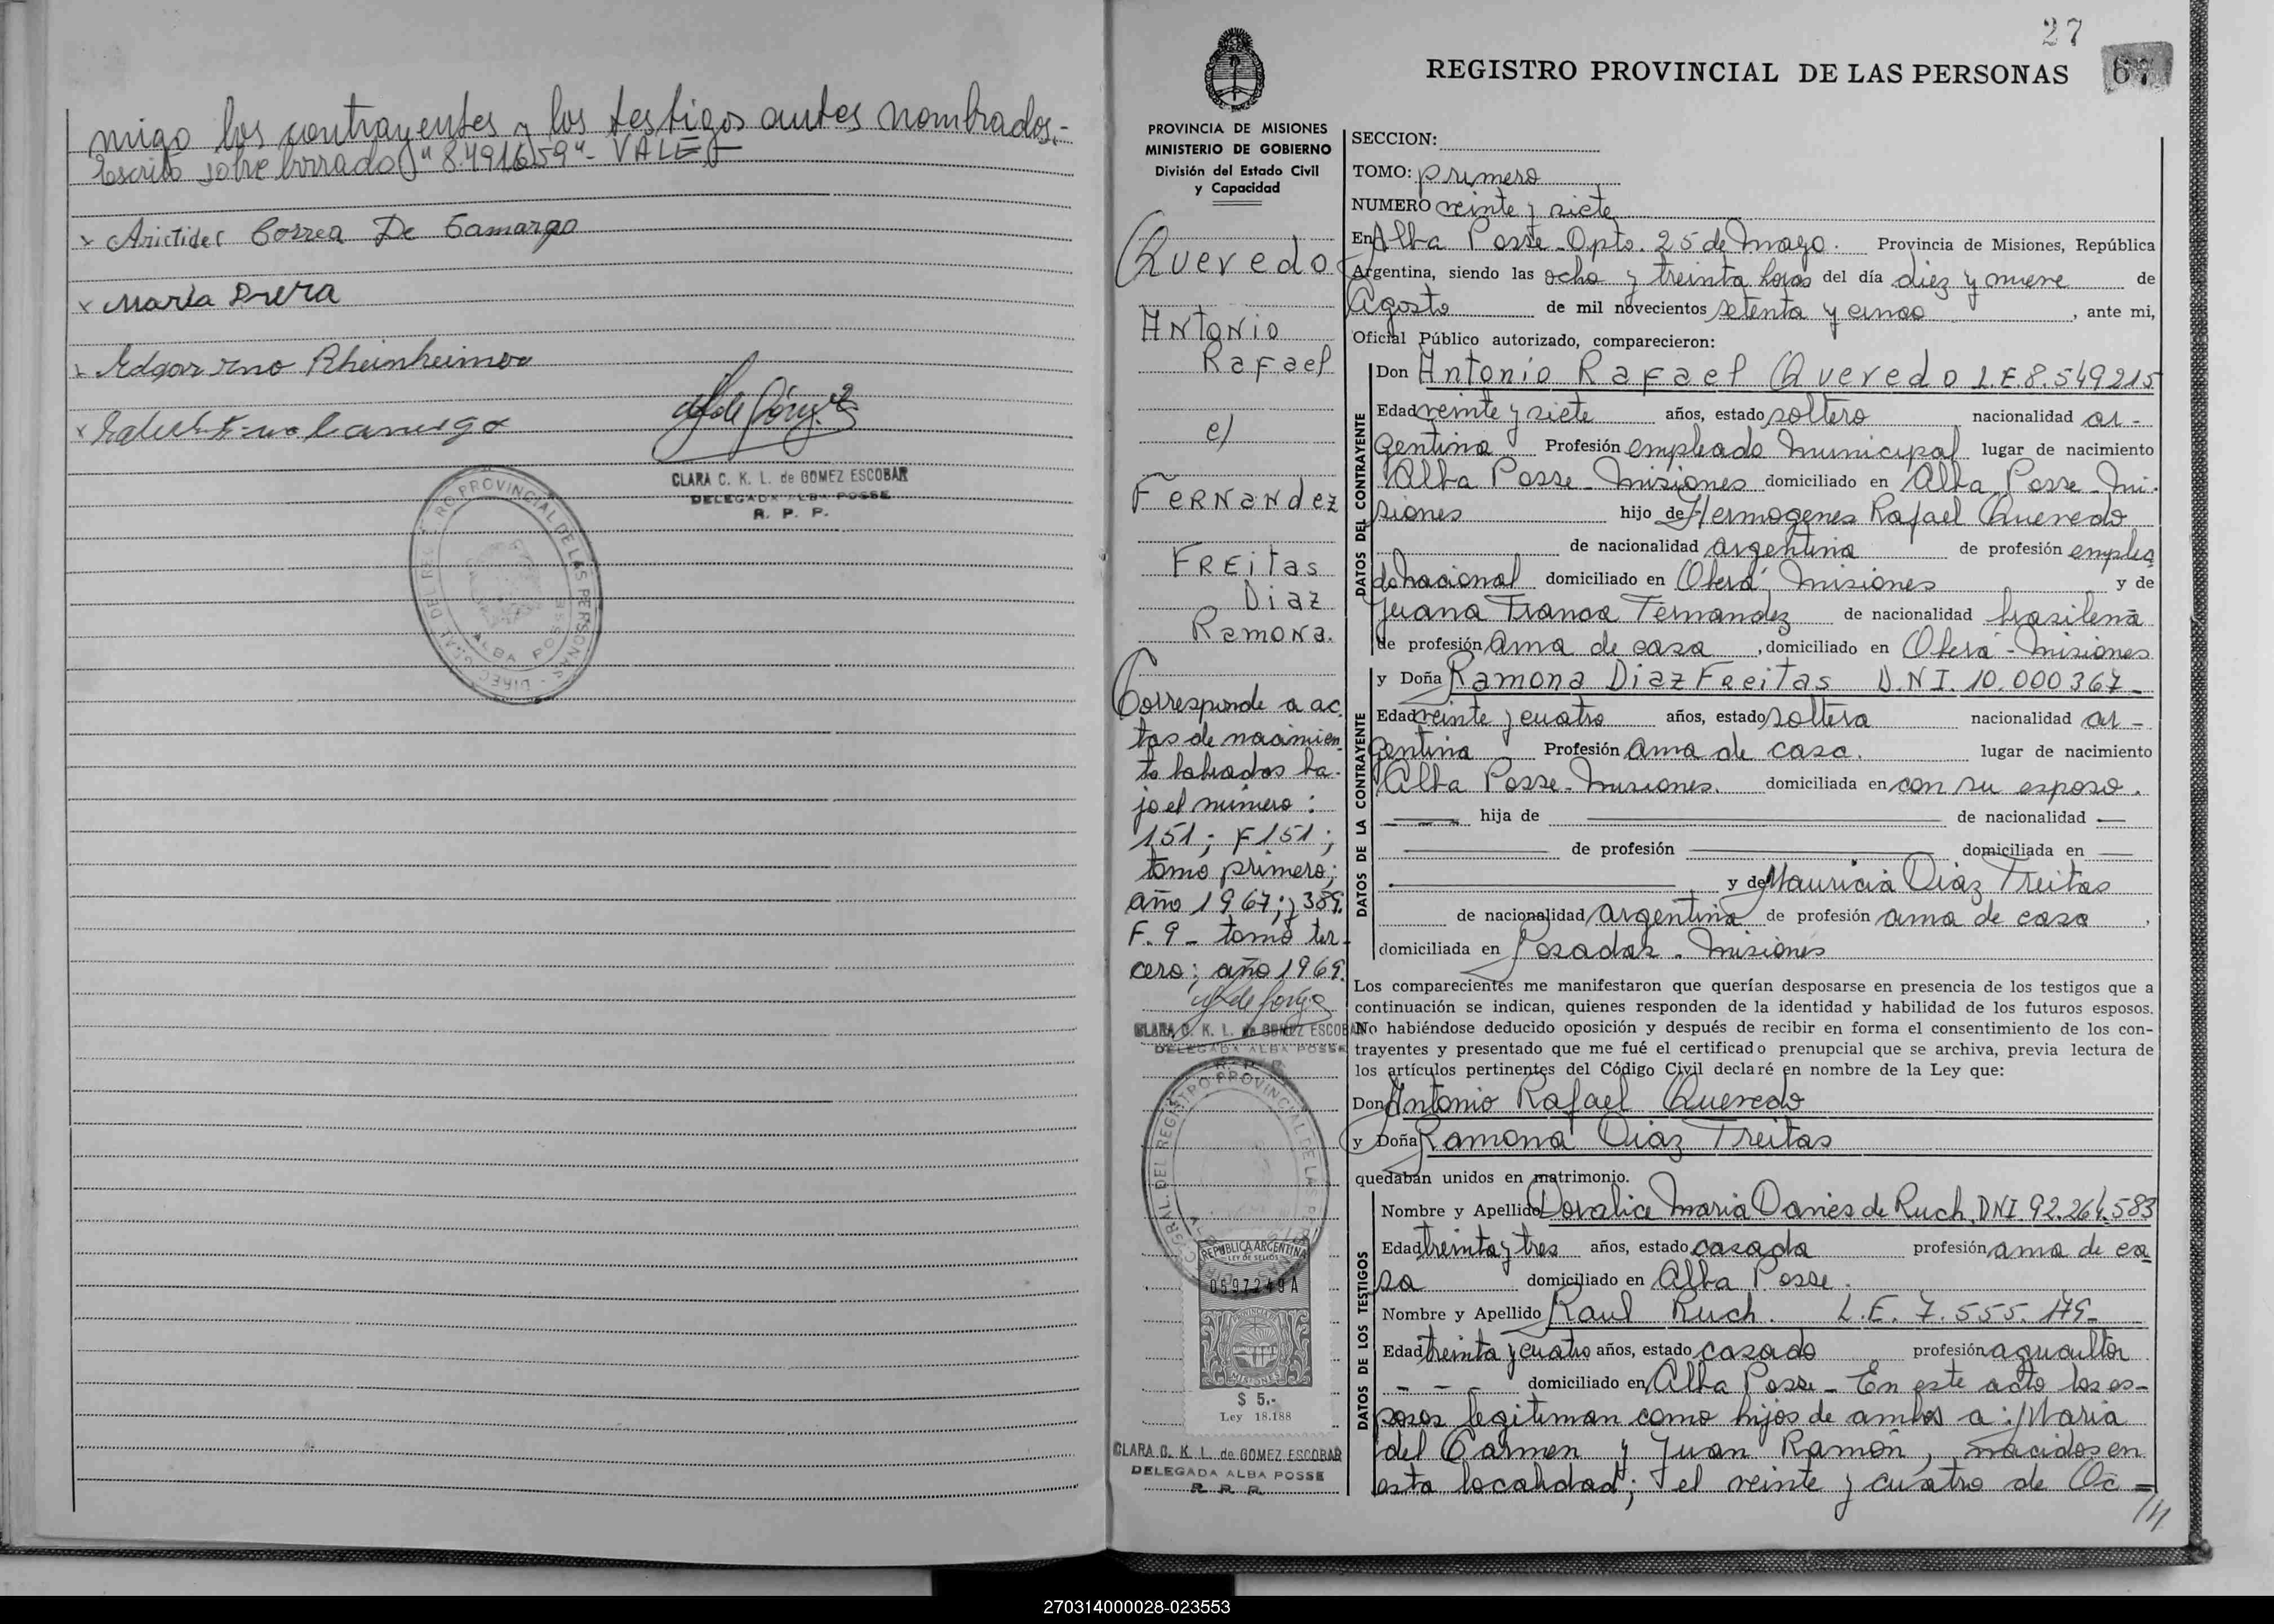 migo los contrayentes y los testigos antes nombrados.-
Escrito sobre borrado "8.491659"- VALE
x Aristides Correa De Camargo
x María
x Edgar Rheinheimer
x
CLARA C. K. L. de GOMEZ ESCOBAR
DELEGADA ALBA POSSE
R. P. P.
REGISTRO PROVINCIAL DE LAS PERSONAS
ALBA POSSE
27
REGISTRO PROVINCIAL DE LAS PERSONAS
67
PROVINCIA DE MISIONES
MINISTERIO DE GOBIERNO
División del Estado Civil
y Capacidad
Quevedo
Antonio
Rafael
c/
Fernandez
Freitas
Diaz
Ramona.
Corresponde a ac
tas de nacimien
to labradas ba-
jo el número:
151; F 151;
tomo primero;
año 1967; y 389.
F. 9 - tomo ter-
cero; año 1969.
CLARA C. K. L. de GOMEZ ESCOBAR
DELEGADA ALBA POSSE
R. P. P.
REGISTRO PROVINCIAL DE LAS
REPUBLICA ARGENTINA
LEY DE SELLOS
0597249A
MISIONES
$ 5,-
Ley 18.188
CLARA C. K. L. de GOMEZ ESCOBAR
DELEGADA ALBA POSSE
R. P. P.
SECCION:
TOMO: primero
NUMERO veinte y siete
En Alba Posse - Dpto. 25 de Mayo. Provincia de Misiones, República
Argentina, siendo las ocho y treinta horas del día diez y nueve de
Agosto de mil novecientos setenta y cinco, ante mi,
Oficial Público autorizado, comparecieron:
DATOS DEL CONTRAYENTE
Don Antonio Rafael Quevedo L.E. 8.549215
Edad veinte y siete años, estado soltero nacionalidad ar-
gentina Profesión empleado municipal lugar de nacimiento
Alba Posse - Misiones domiciliado en Alba Posse - Mi-
siones hijo de Hermogenes Rafael Quevedo
de nacionalidad argentina de profesión emplea
do nacional domiciliado en Oberá Misiones y de
Juana Franca Fernandez de nacionalidad brasilena
de profesión ama de casa, domiciliado en Oberá - Misiones
DATOS DE LA CONTRAYENTE
y Doña Ramona Diaz Freitas D.N.I. 10.000367-
Edad veinte y cuatro años, estado soltera nacionalidad ar-
gentina Profesión ama de casa. lugar de nacimiento
Alba Posse - Misiones. domiciliada en con su esposo.
hija de de nacionalidad
de profesión domiciliada en
y de Mauricia Diaz Freitas
de nacionalidad argentina de profesión ama de casa,
domiciliada en Posadas - Misiones
Los comparecientes me manifestaron que querían desposarse en presencia de los testigos que a
continuación se indican, quienes responden de la identidad y habilidad de los futuros esposos.
No habiéndose deducido oposición y después de recibir en forma el consentimiento de los con-
trayentes y presentado que me fué el certificado prenupcial que se archiva, previa lectura de
los artículos pertinentes del Código Civil declaré en nombre de la Ley que:
Don Antonio Rafael Quevedo
y Doña Ramona Diaz Freitas
quedaban unidos en matrimonio.
DATOS DE LOS TESTIGOS
Nombre y Apellido Doralice Maria Danies de Ruch. DNI. 92.264.583
Edad treinta y tres años, estado casada profesión ama de ca
sa domiciliado en Alba Posse.
Nombre y Apellido Raul Ruch. L.E. 7.555.179-
Edad treinta y cuatro años, estado casado profesión agricultor
- - - domiciliado en Alba Posse - En este acto los es-
posos legitiman como hijos de ambos a: Maria
del Carmen y Juan Ramón, nacidos en
esta localidad; el veinte y cuatro de Oc=
///
270314000028-023553